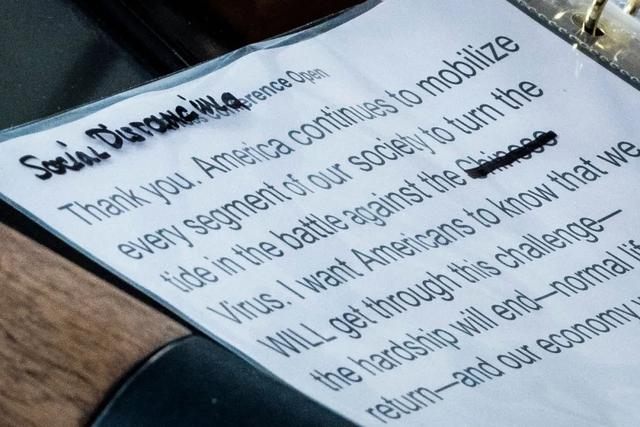 Social Distancing erence Open
Thank you. America continues to mobilize
every segment of our society to turn the
tide in the battle against the Chinese
Virus. I want Americans to know that we
WILL get through this challenge—
the hardship will end—normal
return—and our economy